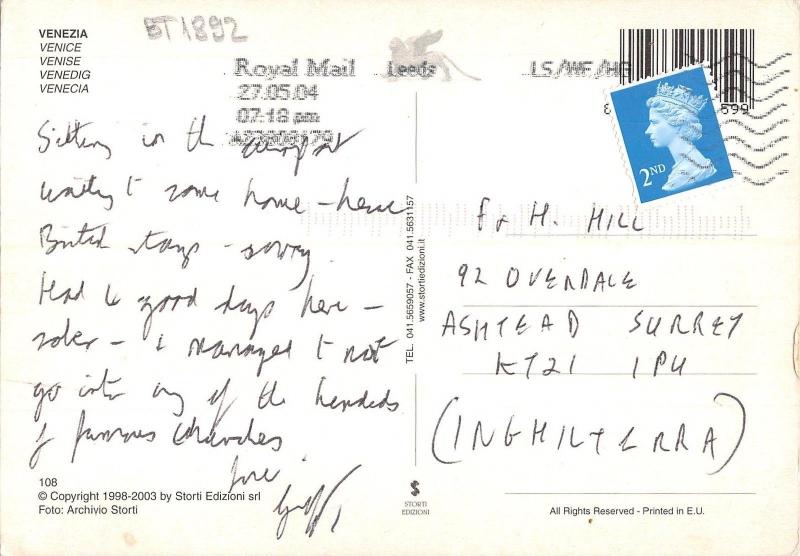 VENEZIA
VENICE
VENISE
VENEDIG
VENECIA
BT1892
Royal Mail Leeds
27.05.04
07:18 pm
LS/WF/HG
2ND
Sitting in the airport
waiting to come home – hence
British stamps – sorry.
Had 6 good days here –
sober – I managed to not
go into any of the hundreds
of famous churches
love
F & H. HILL
92 OVERDALE
ASHTEAD SURREY
KT21 1PU
(INGHILTERRA)
TEL. 041.5659057 - FAX 041.5631157
www.stortiedizioni.it
108
© Copyright 1998-2003 by Storti Edizioni srl
Foto: Archivio Storti
S
STORTI
EDIZIONI
All Rights Reserved - Printed in E.U.